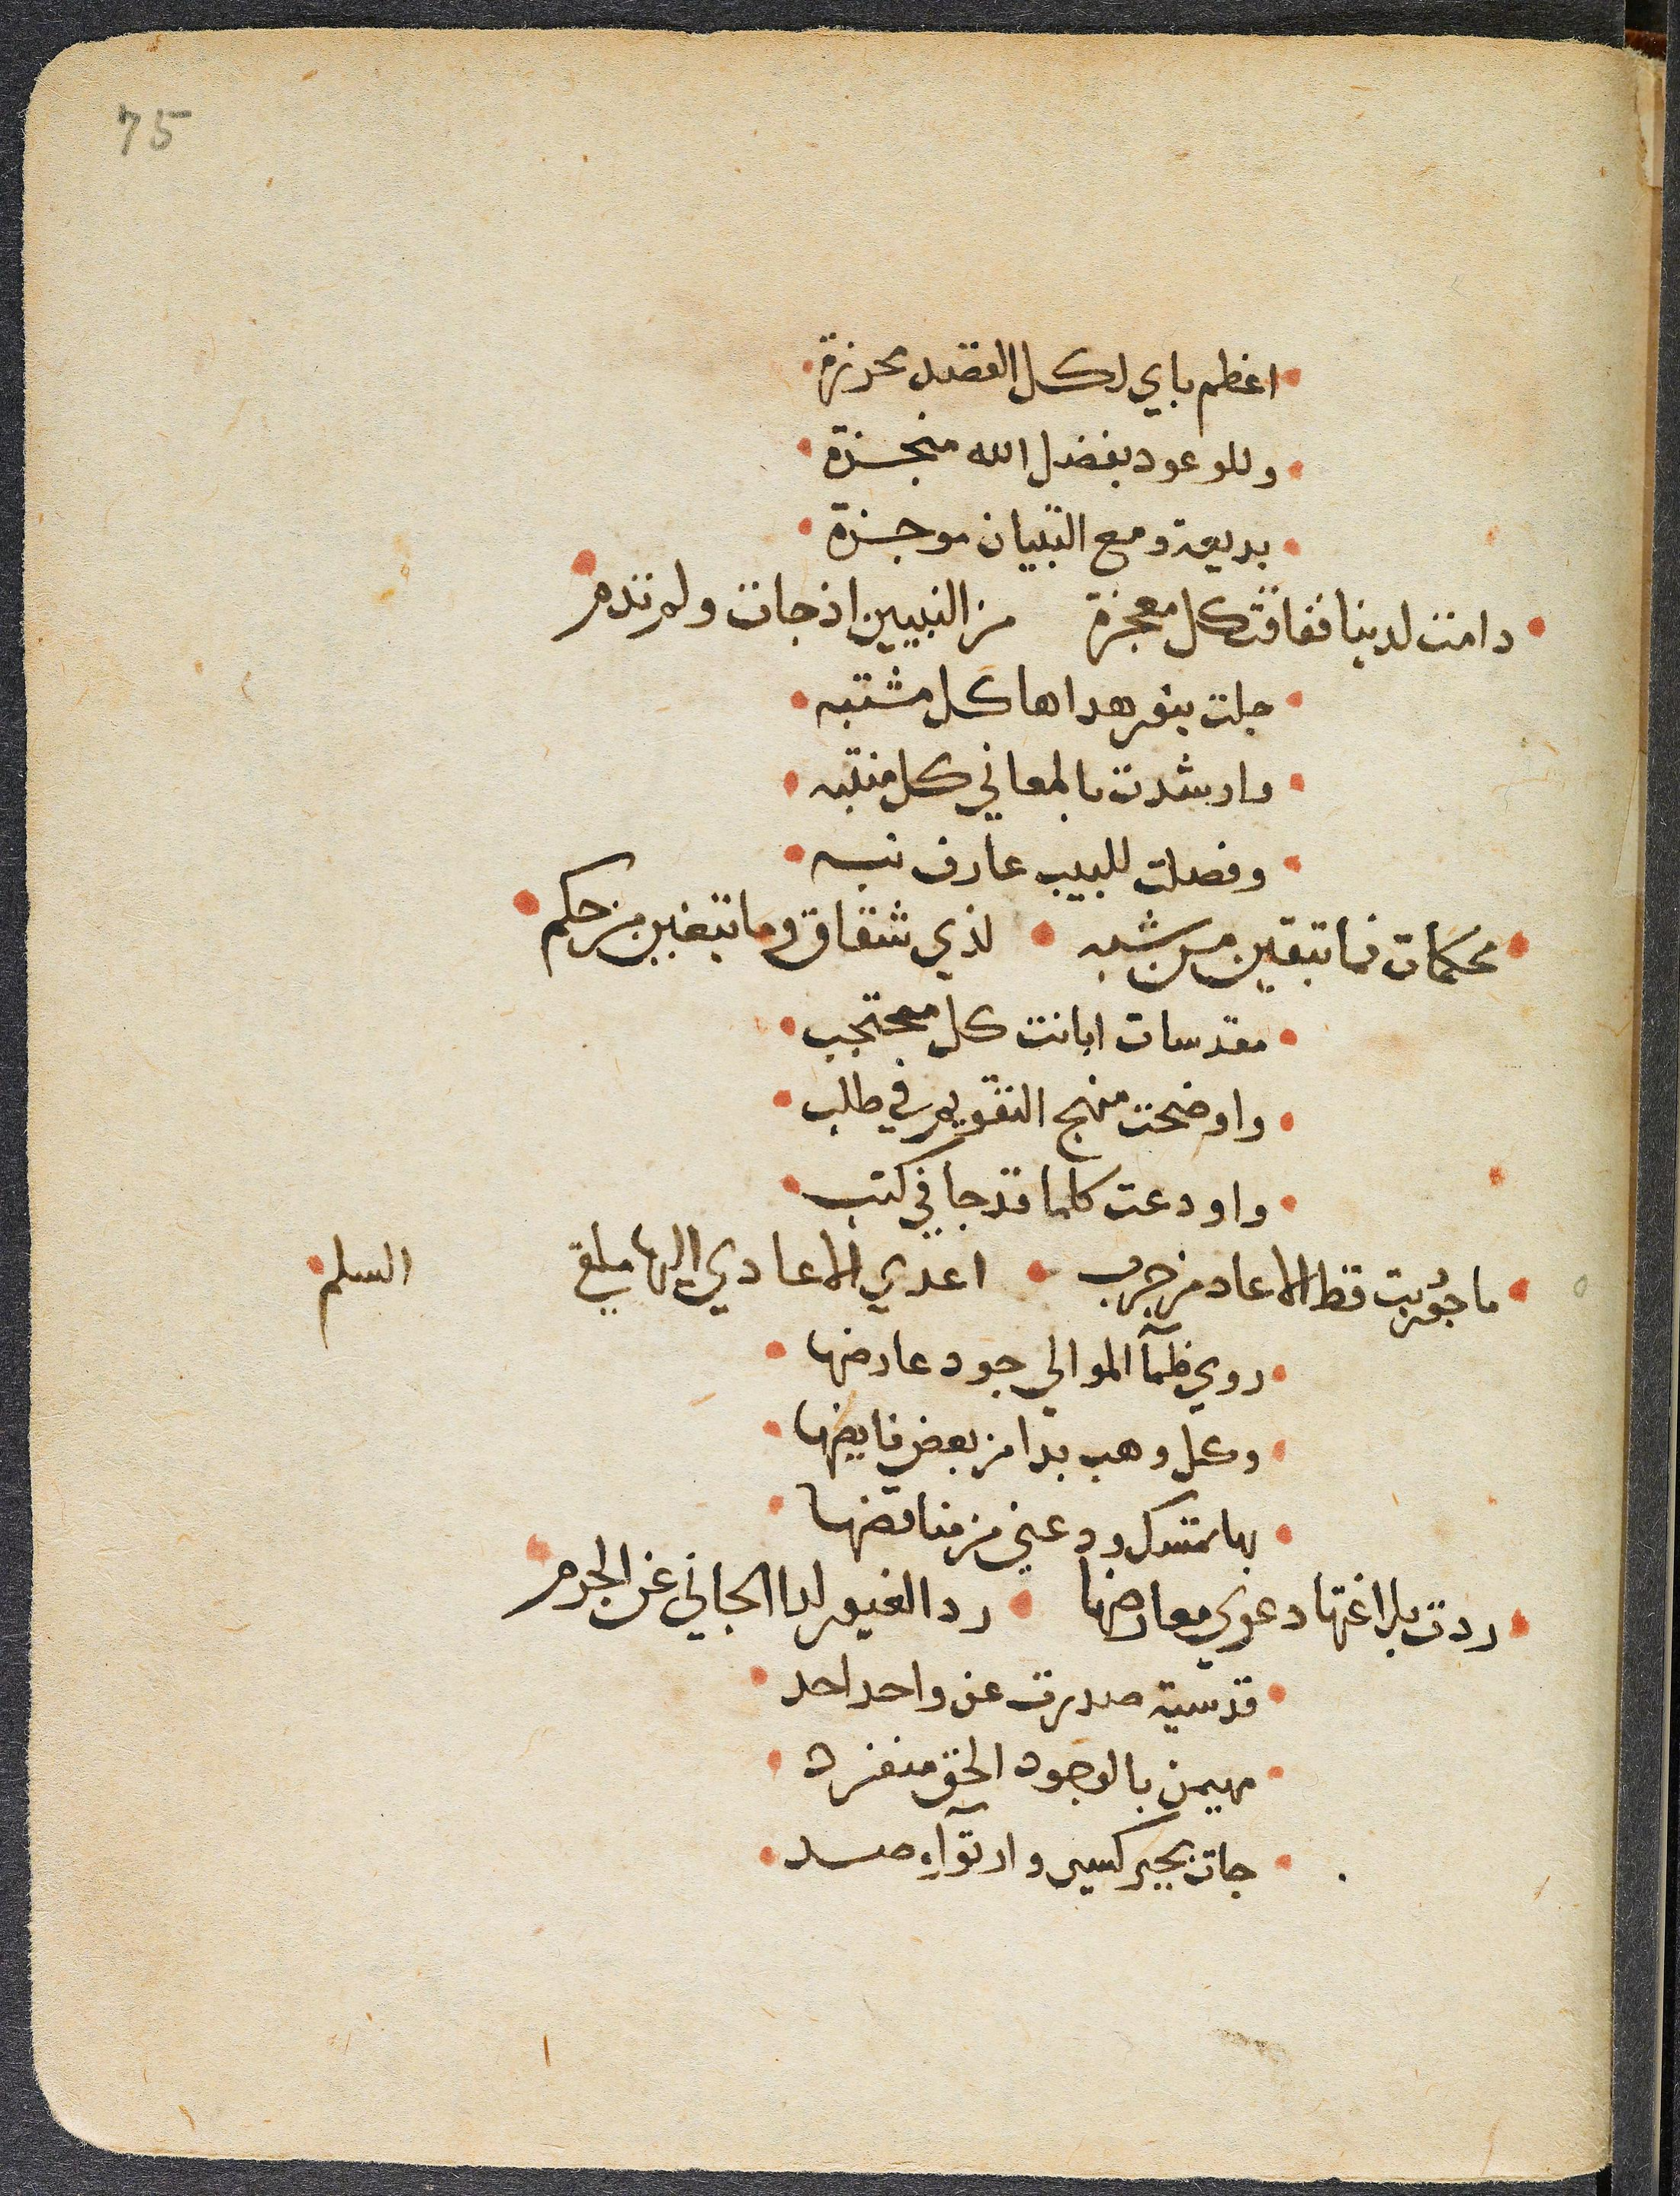 75
اعظم باي لكل القصد محرزة
وللوعود بفضل الله منجزة
بديعة ومع التبيان موجزة
دامت لدينا ففاقت كل معجزة من النبيين اذ جات ولم تدم
جلت بنور هداها كل مشتبه
وارشدت بالمعاني كل منتبه
وفصلت للبيب عارف نبه
محكمات فما تبقين من شبه لذي شقاق وما تبغين من حكم
مقدسات ابانت كل محتجب
واوضحت منهج التقويم في طلب
واودعت كلما قد جا في كتب
ما حُوربت قط الا عاد من حرب اعدي الاعادي اليها ملقي السلم
روي ظمآ الموالي جود عارضها
وكل وهب بدا من بعض فايضها
بها تمسك ودعني من مناقضها
ردت بلاغتها دعوي معارضها رد الغيور لدا الجاني عن الحرم
قدسية صدرت عن واحد احد
مهيمن بالوجود الحق منفرد
جات بجبر كسير وارتوآء صد